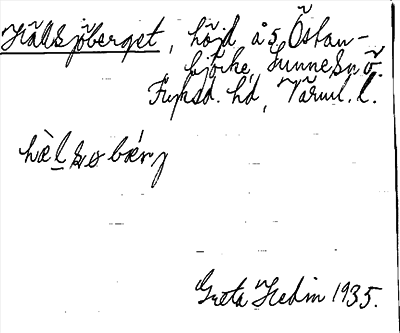 Hällsjöberget, höjd å s. Östan-
björke, Sunne sn Ö.
Fryksd. hd, Värml. l.
hæ̀l̥søbærj
Greta Hedin 1935.